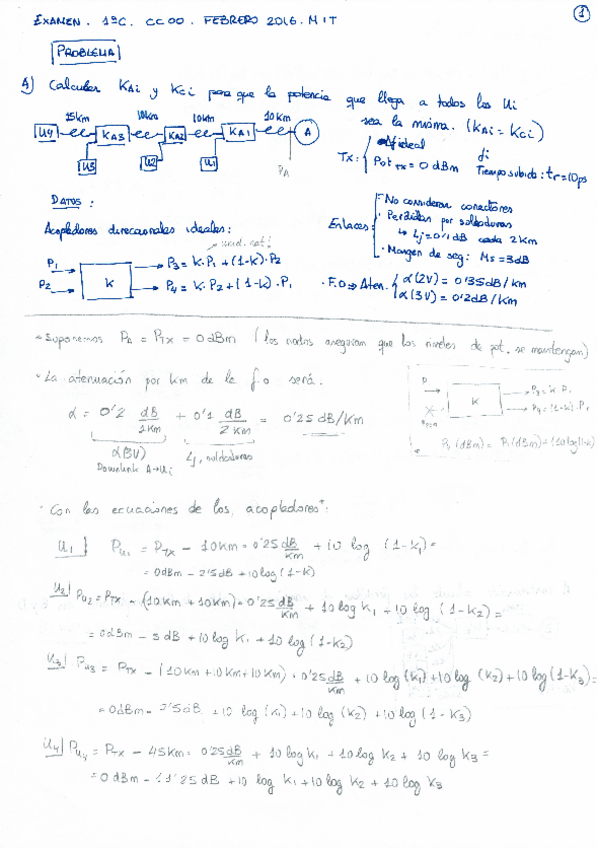 ①
EXAMEN. 1ºC. CCOO. FEBRERO 2016. MIT
PROBLEMA
A) Calcular KAi y KCi para que la potencia que llega a todos los Ui
sea la misma. (KAi = KCi)
15km 10km 10km 10km
U4 KA3 KA2 KA1 A
U3 U2 U1 PA
Tx: λ ideal
Pot TX = 0 dBm
Tiempo subida: tr = 10ps
DATOS:
Acopladores direccionales ideales:
P1 → K → P3 = K·P1 + (1-K)·P2
P2 → P4 = K·P2 + (1-K)·P1
Enlaces: · No consideran conectores
· Perdidas por soldaduras
↳ Lj = 0'1 dB cada 2 km
· Margen de seg: Ms = 3dB
· F.O ⇒ Aten. α(2V) = 0'35dB/km
α(3V) = 0'2dB/km
· Suponemos PA = PTX = 0dBm (los nodos aseguran que los niveles de pot. se mantengan)
· La atenuación por km de la f.o será.
α = 0'2 dB/1km + 0'1 dB/2km = 0'25 dB/Km
α(3V) Lj, soldaduras
Downlink A→Ui
P K P3 = K·P1
P4 = (1-K)·P1
· Con las ecuaciones de los acopladores*:
U1 PU1 = PTX - 10km · 0'25 dB/km + 10 log (1-K1) =
= 0dBm - 2'5dB + 10log(1-K)
U2 PU2 = PTX - (10km + 10km) · 0'25 dB/km + 10 log K1 + 10 log (1-K2) =
= 0dBm - 5dB + 10 log K1 + 10 log (1-K2)
U3 PU3 = PTX - (10km + 10km + 10km) · 0'25 dB/km + 10 log (K1) + 10 log (K2) + 10 log (1-K3) =
= 0dBm - 7'5dB + 10 log (K1) + 10 log (K2) + 10 log (1-K3)
U4 PU4 = PTX - 45km · 0'25 dB/km + 10 log K1 + 10 log K2 + 10 log K3 =
= 0dBm - 11'25 dB + 10 log K1 + 10 log K2 + 10 log K3